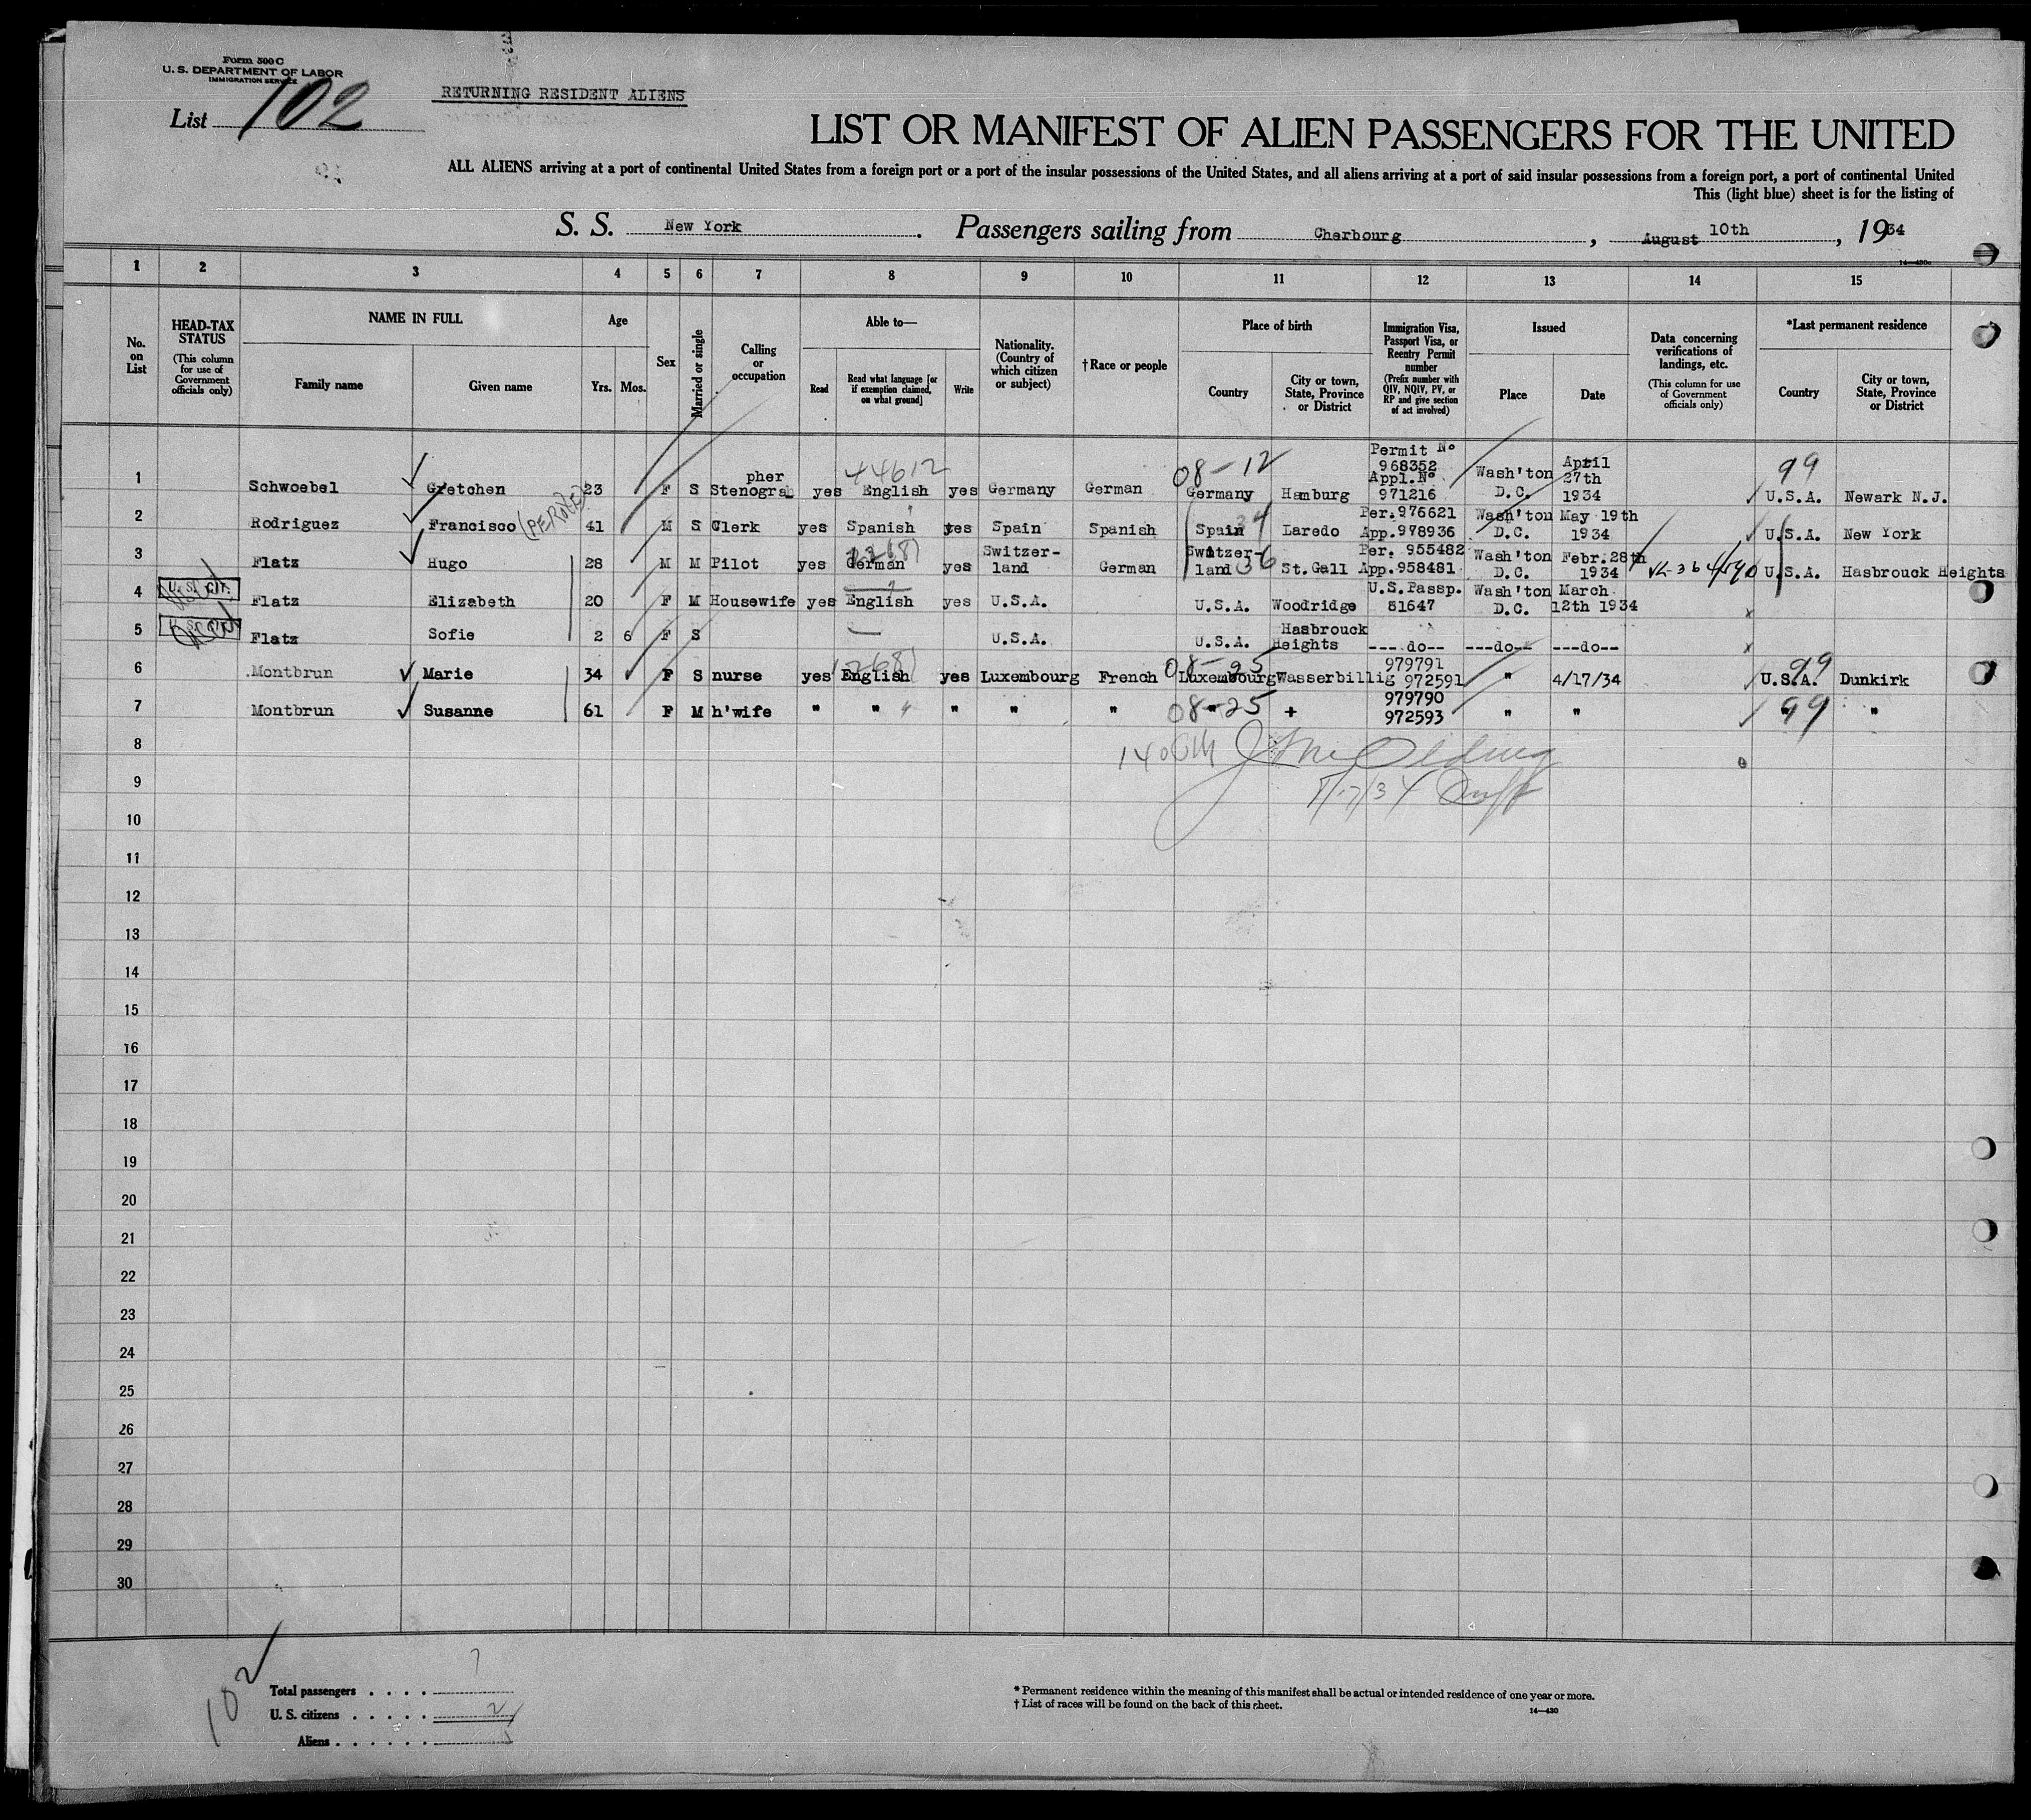 Form 500 C
U. S. DEPARTMENT OF LABOR
IMMIGRATION SERVICE
List 102
RETURNING RESIDENT ALIENS
LIST OR MANIFEST OF ALIEN PASSENGERS FOR THE UNITED
ALL ALIENS arriving at a port of continental United States from a foreign port or a port of the insular possessions of the United States, and all aliens arriving at a port of said insular possessions from a foreign port, a port of continental United
This (light blue) sheet is for the listing of
S. S. New York. Passengers sailing from Cherbourg, August 10th, 1934
14—430c
1 2 3 4 5 6 7 8 9 10 11 12 13 14 15
No. on List
HEAD-TAX STATUS (This column for use of Government officials only)
NAME IN FULL
Family name
Given name
Age
Yrs. Mos.
Sex
Married or single
Calling or occupation
Able to—
Read
Read what language [or if exemption claimed, on what ground]
Write
Nationality. (Country of which citizen or subject)
†Race or people
Place of birth
Country
City or town, State, Province or District
Immigration Visa, Passport Visa, or Reentry Permit number (Prefix number with QIV, NQIV, PV, or RP and give section of act involved)
Issued
Place
Date
Data concerning verifications of landings, etc. (This column for use of Government officials only)
*Last permanent residence
Country
City or town, State, Province or District
1 Schwoebel Gretchen 23 F S Stenographer yes English yes Germany German Germany Hamburg Permit No 968352 Appl.No 971216 Wash'ton D.C. April 27th 1934 U.S.A. Newark N.J.
44612 08-12 99
2 Rodriguez Francisco 41 M S Clerk yes Spanish yes Spain Spanish Spain Laredo Per.976621 App.978936 Wash'ton D.C. May 19th 1934 U.S.A. New York
34
3 Flatz Hugo 28 M M Pilot yes German yes Switzer-land German Switzer-land St.Gall Per. 955482 App.958481 Wash'ton D.C. Febr.28th 1934 U.S.A. Hasbrouck Heights
36
4 U.S. CIT. Flatz Elizabeth 20 F M Housewife yes English yes U.S.A. U.S.A. Woodridge U.S.Passp. 81647 Wash'ton D.C. March 12th 1934 x
5 U.S. CIT. Flatz Sofie 2 6 F S U.S.A. U.S.A. Hasbrouck Heights ---do-- ---do-- ---do-- x
6 Montbrun Marie 34 F S nurse yes English yes Luxembourg French Luxembourg Wasserbillig 979791 972591 " 4/17/34 U.S.A. Dunkirk
08-25 99
7 Montbrun Susanne 61 F M h'wife " " " " " " + 979790 972593 " " " "
08-25 99
8
9
10
11
12
13
14
15
16
17
18
19
20
21
22
23
24
25
26
27
28
29
30
102
Total passengers . . . . 7
U. S. citizens . . . . . 2
Aliens . . . . . . 5
* Permanent residence within the meaning of this manifest shall be actual or intended residence of one year or more.
† List of races will be found on the back of this sheet.
14—430